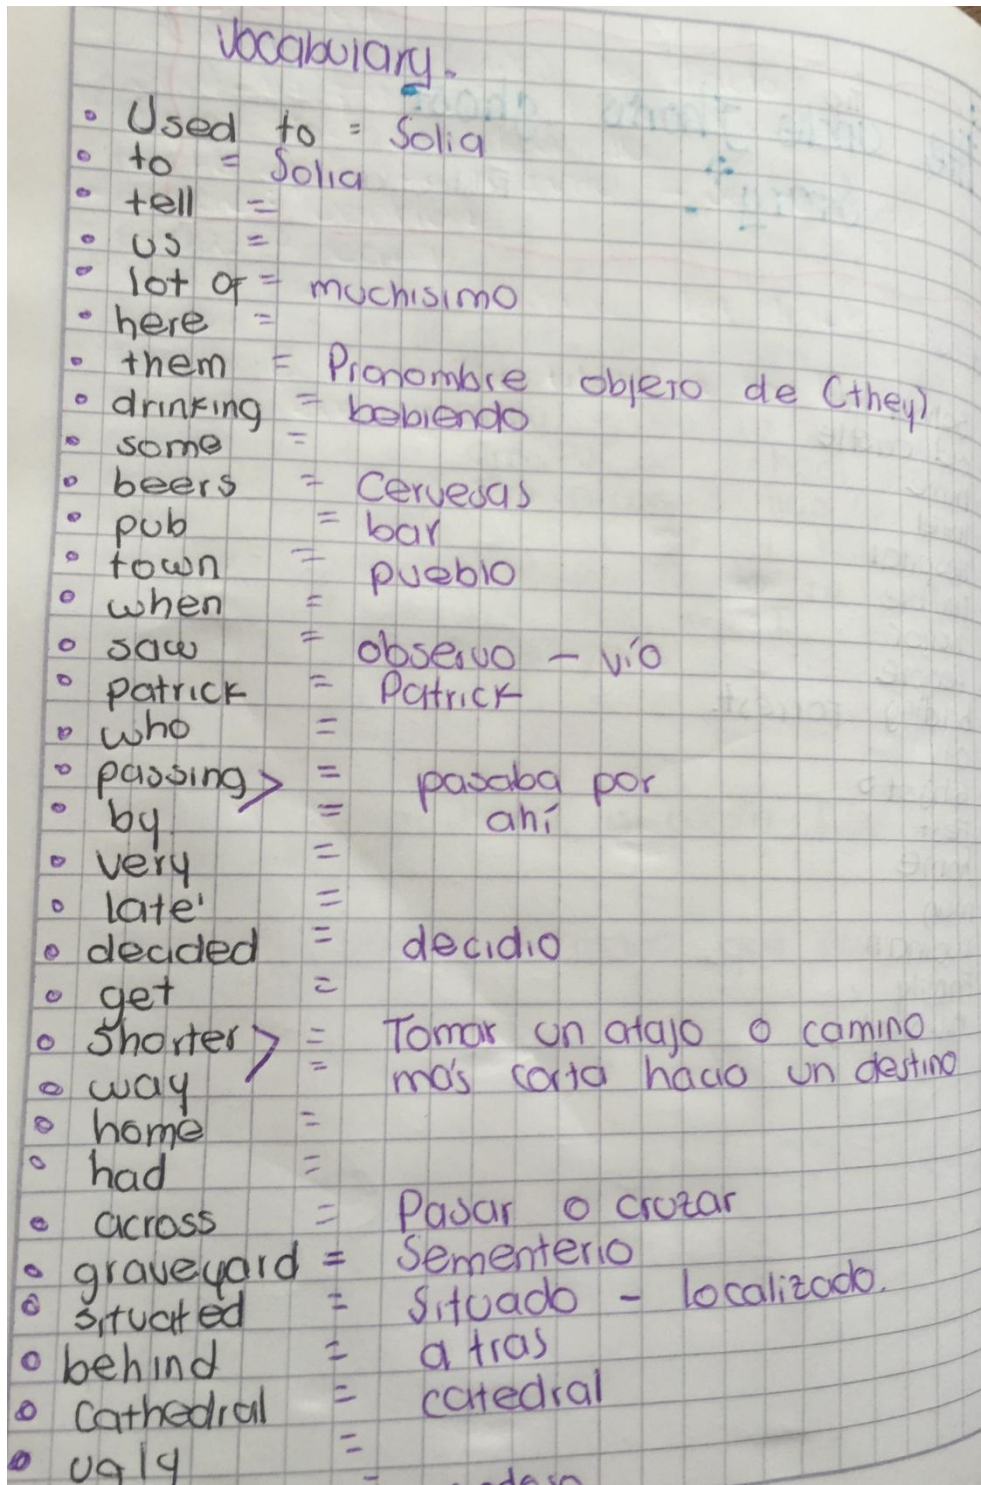 Vocabulary.
• Used to = Solia
• to = Solia
• tell =
• us =
• lot of = muchisimo
• here =
• them = Pronombre objeto de (they)
• drinking = bebiendo
• some =
• beers = Cervesas
• pub = bar
• town = pueblo
• when =
• saw = observo - vío
• Patrick = Patrick
• who =
• passing > = pasaba por
• by = ahí
• very =
• late =
• decided = decidio
• get =
• Shorter > = Tomar un atajo o camino
• way = más corto hacia un destino
• home =
• had =
• across = Pasar o cruzar
• graveyard = Sementerio
• situated = Situado - localizado.
• behind = a tras
• Cathedral = catedral
• ugly =